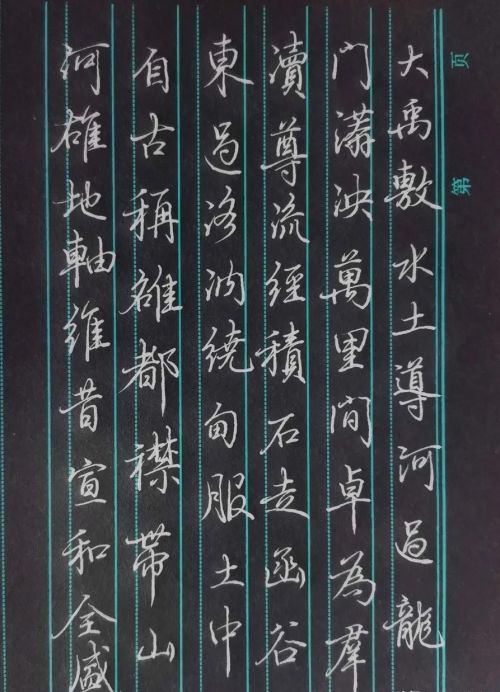 第 页
大禹敷水土導河過龍
門瀟泱萬里間卓為羣
瀆尊流經積石走函谷
東過洛汭繞甸服土中
自古稱雄都襟帶山
河雄地軸維昔宣和全盛